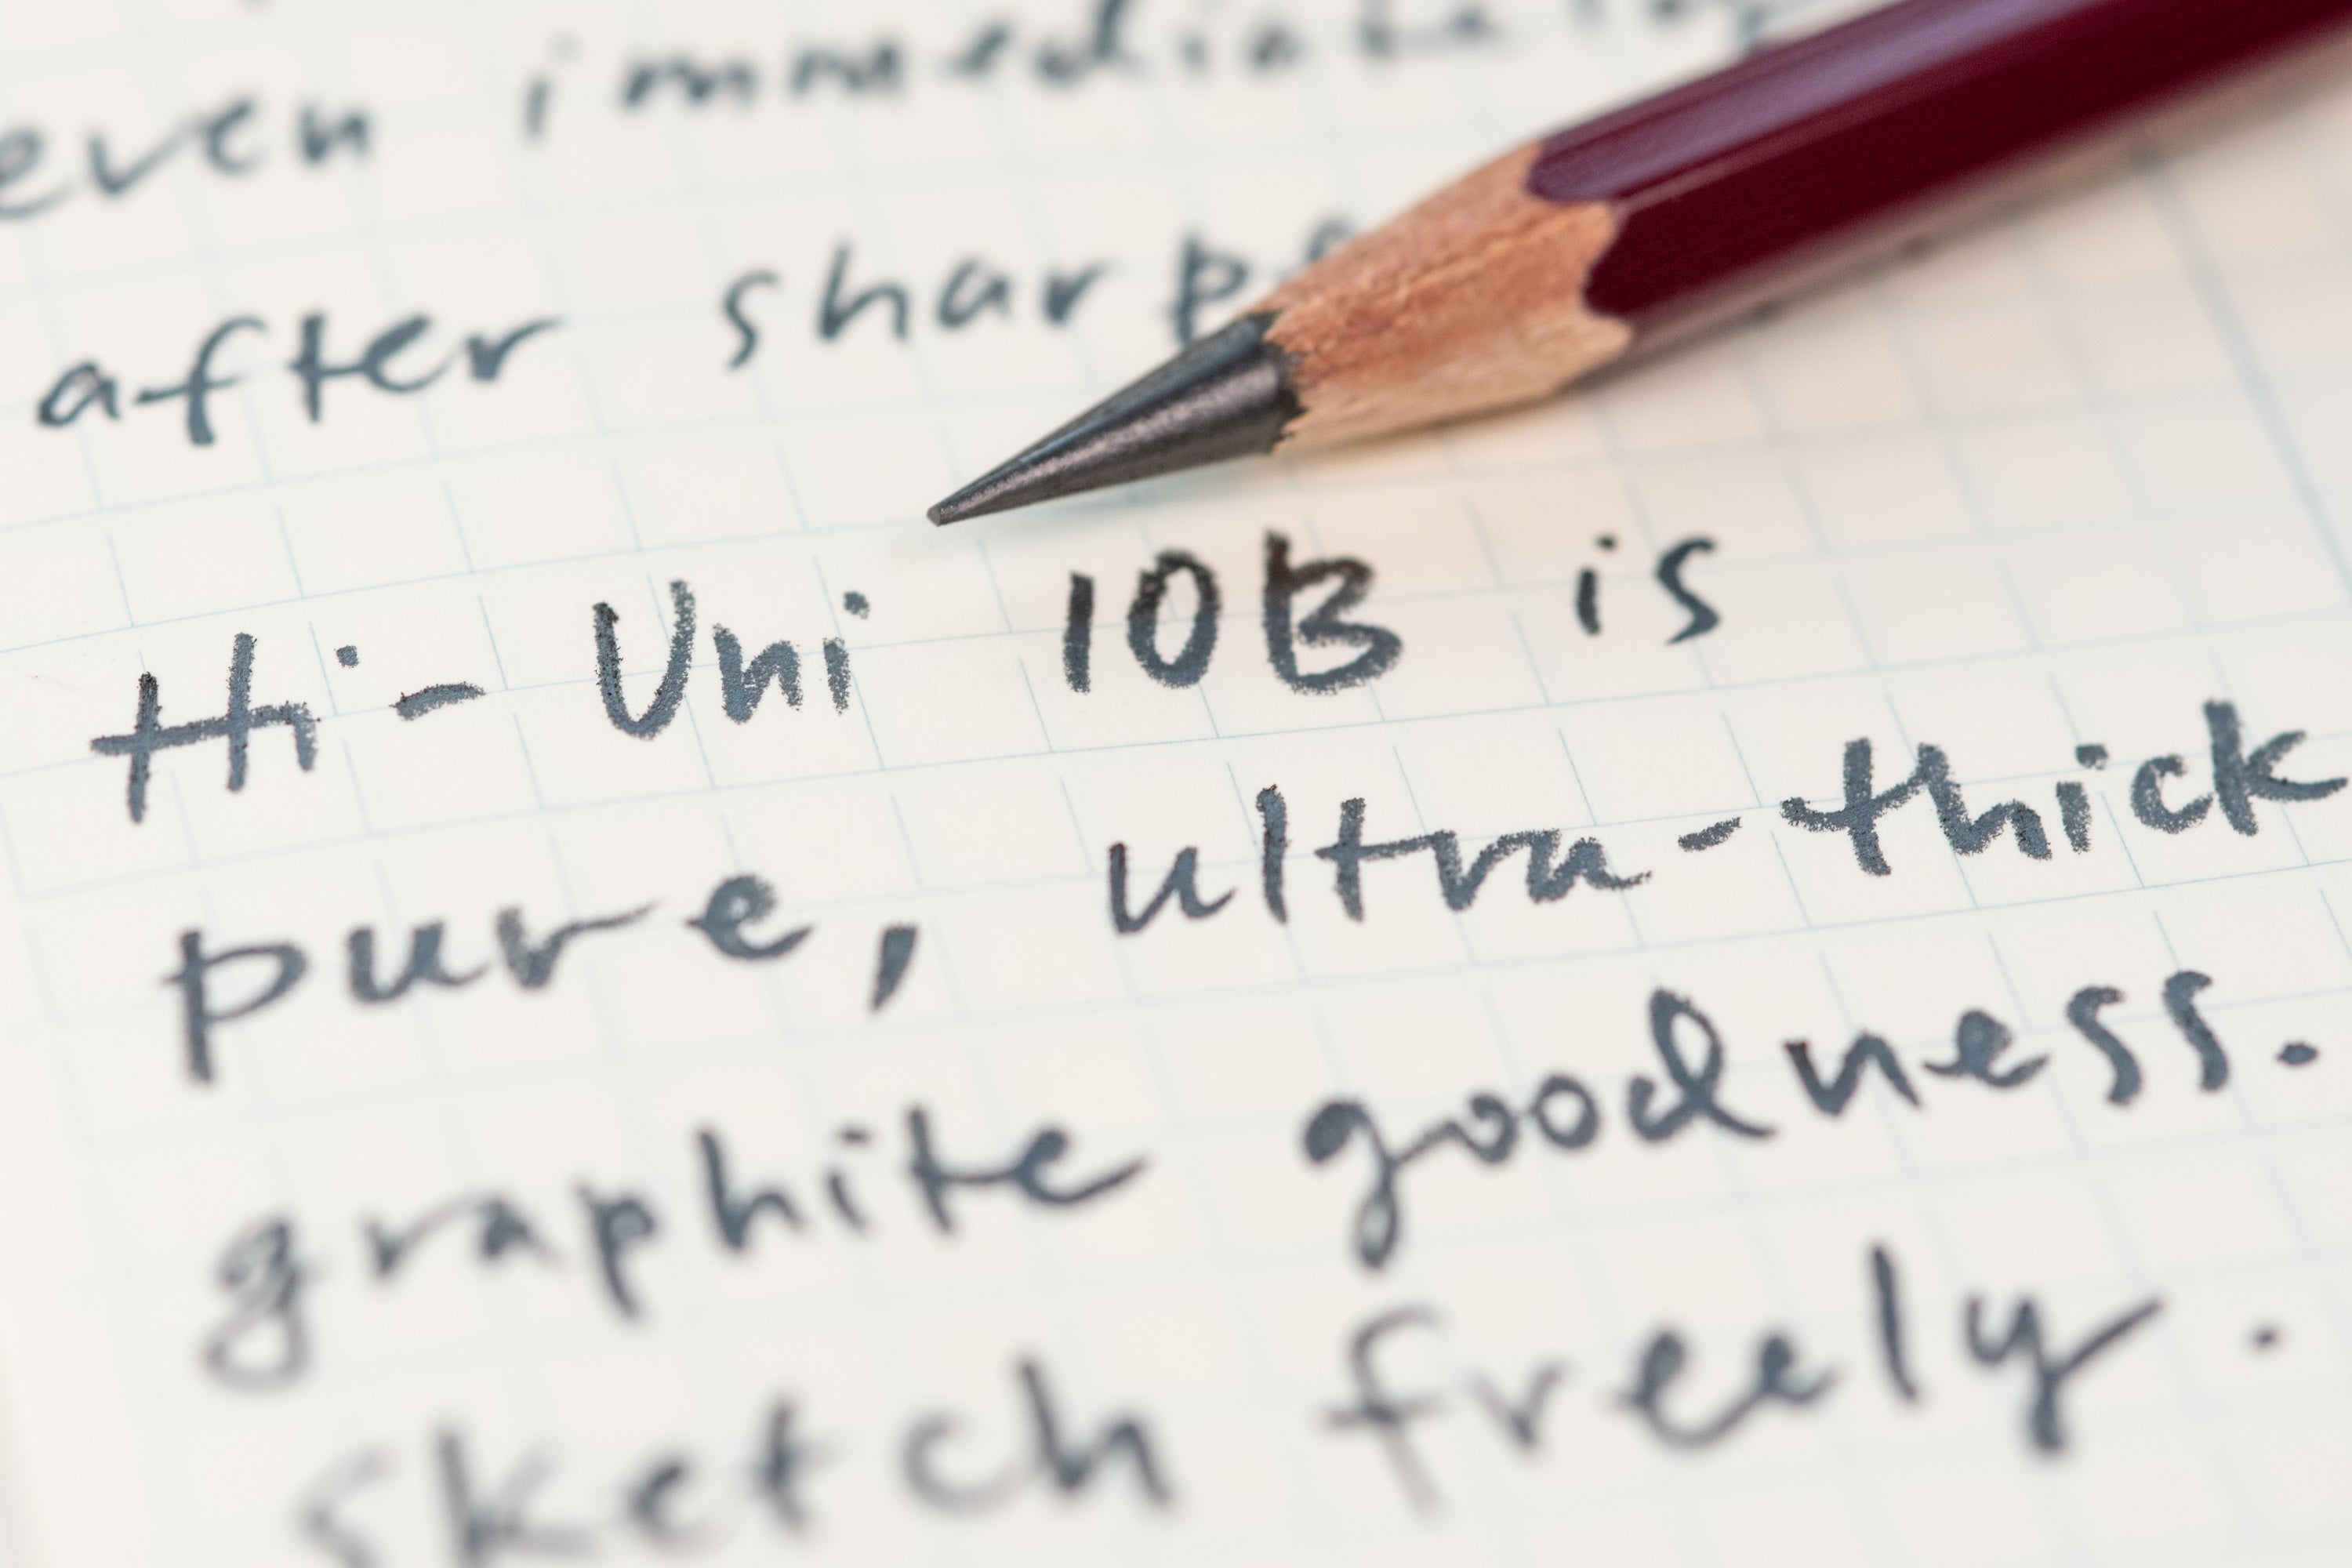 even immediately
after sharpe
Hi-Uni 10B is
pure, ultra-thick
graphite goodness.
sketch freely.